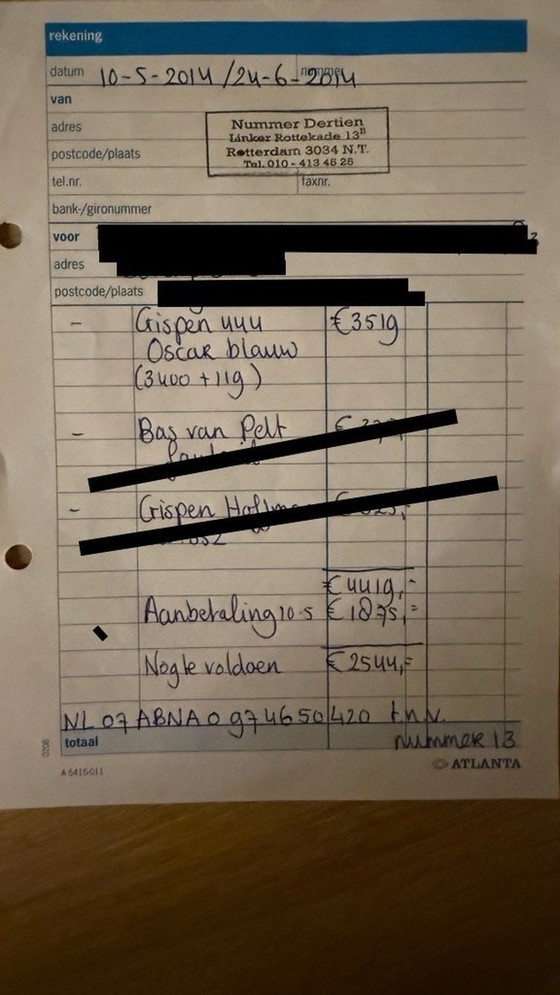 rekening
datum 10-5-2014 / 24-6-2014 nummer
van
adres
postcode/plaats
Nummer Dertien
Linker Rottekade 13B
Rotterdam 3034 N.T.
Tel. 010 - 413 45 25
tel.nr. faxnr.
bank-/gironummer
voor
adres
postcode/plaats
- Gispen 444 €3519
Oscar blauw
(3400 + 119)
- Bas van Pelt €
- Gispen
€4419,-
Aanbetaling 10-5 €1875,=
Nog te voldoen €2544,=
NL 07 ABNA 0 974650420 t.n.v.
totaal nummer 13
0208
A 6415-011
ATLANTA